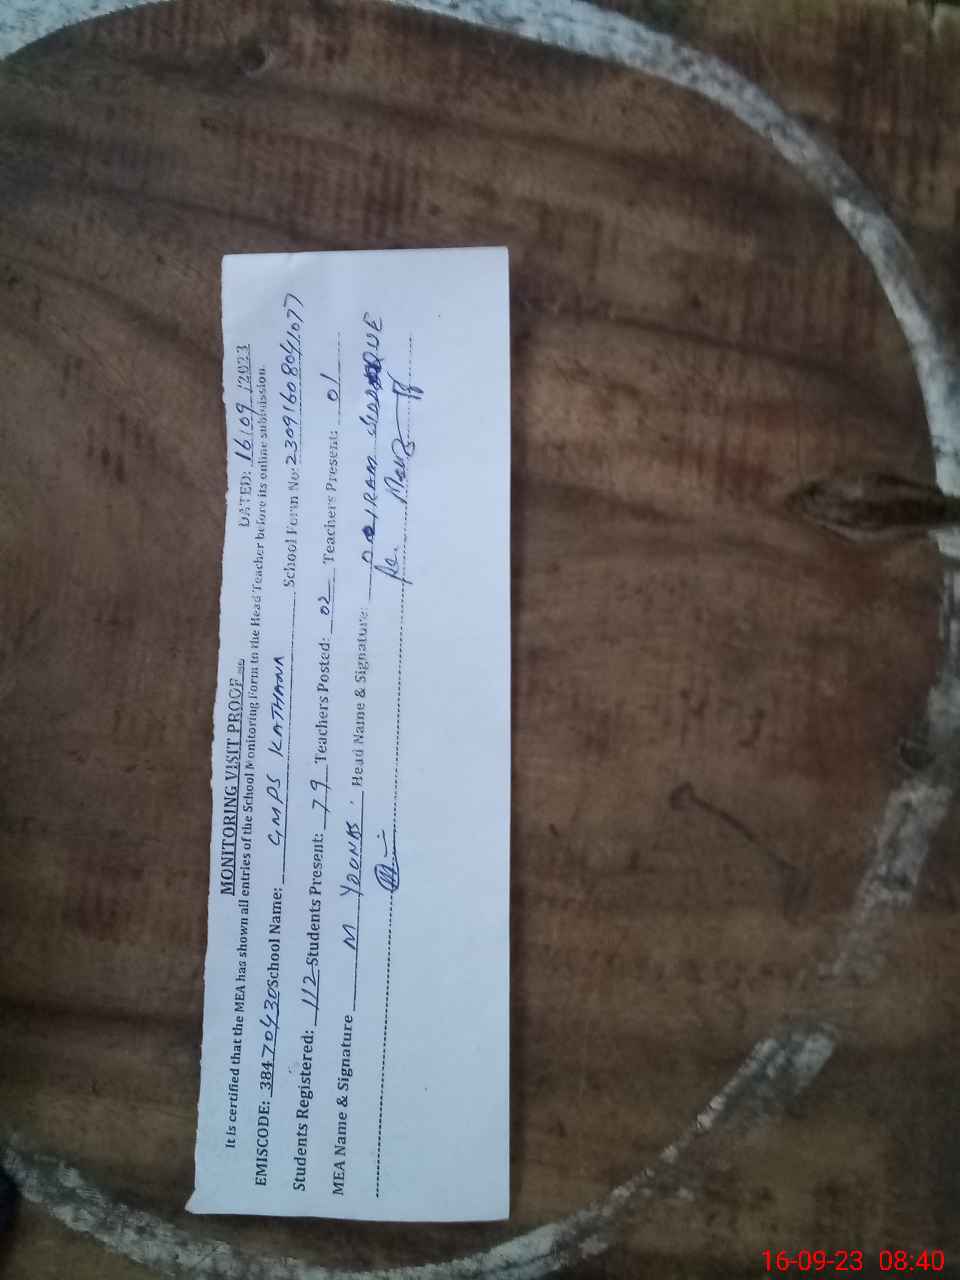 MONITORING VISIT PROOF
DATED: 16/09/2023
It is certified that the MEA has shown all entries of the School Monitoring Form to the Head Teacher before its online submission.
EMISCODE: 38470430 School Name: GMPS KATHANA School Form No: 23091608041077
Students Registered: 112 Students Present: 79 Teachers Posted: 02 Teachers Present: 01
MEA Name & Signature M YOUNAS. Head Name & Signature:
16-09-23 08:40